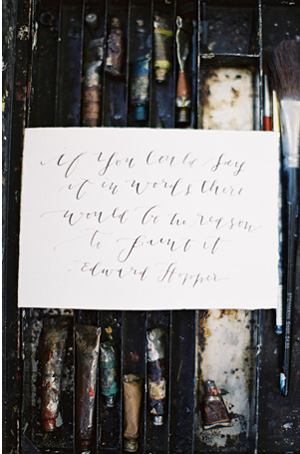 if you could say
it in words there
would be no reason
to paint it
- Edward Hopper